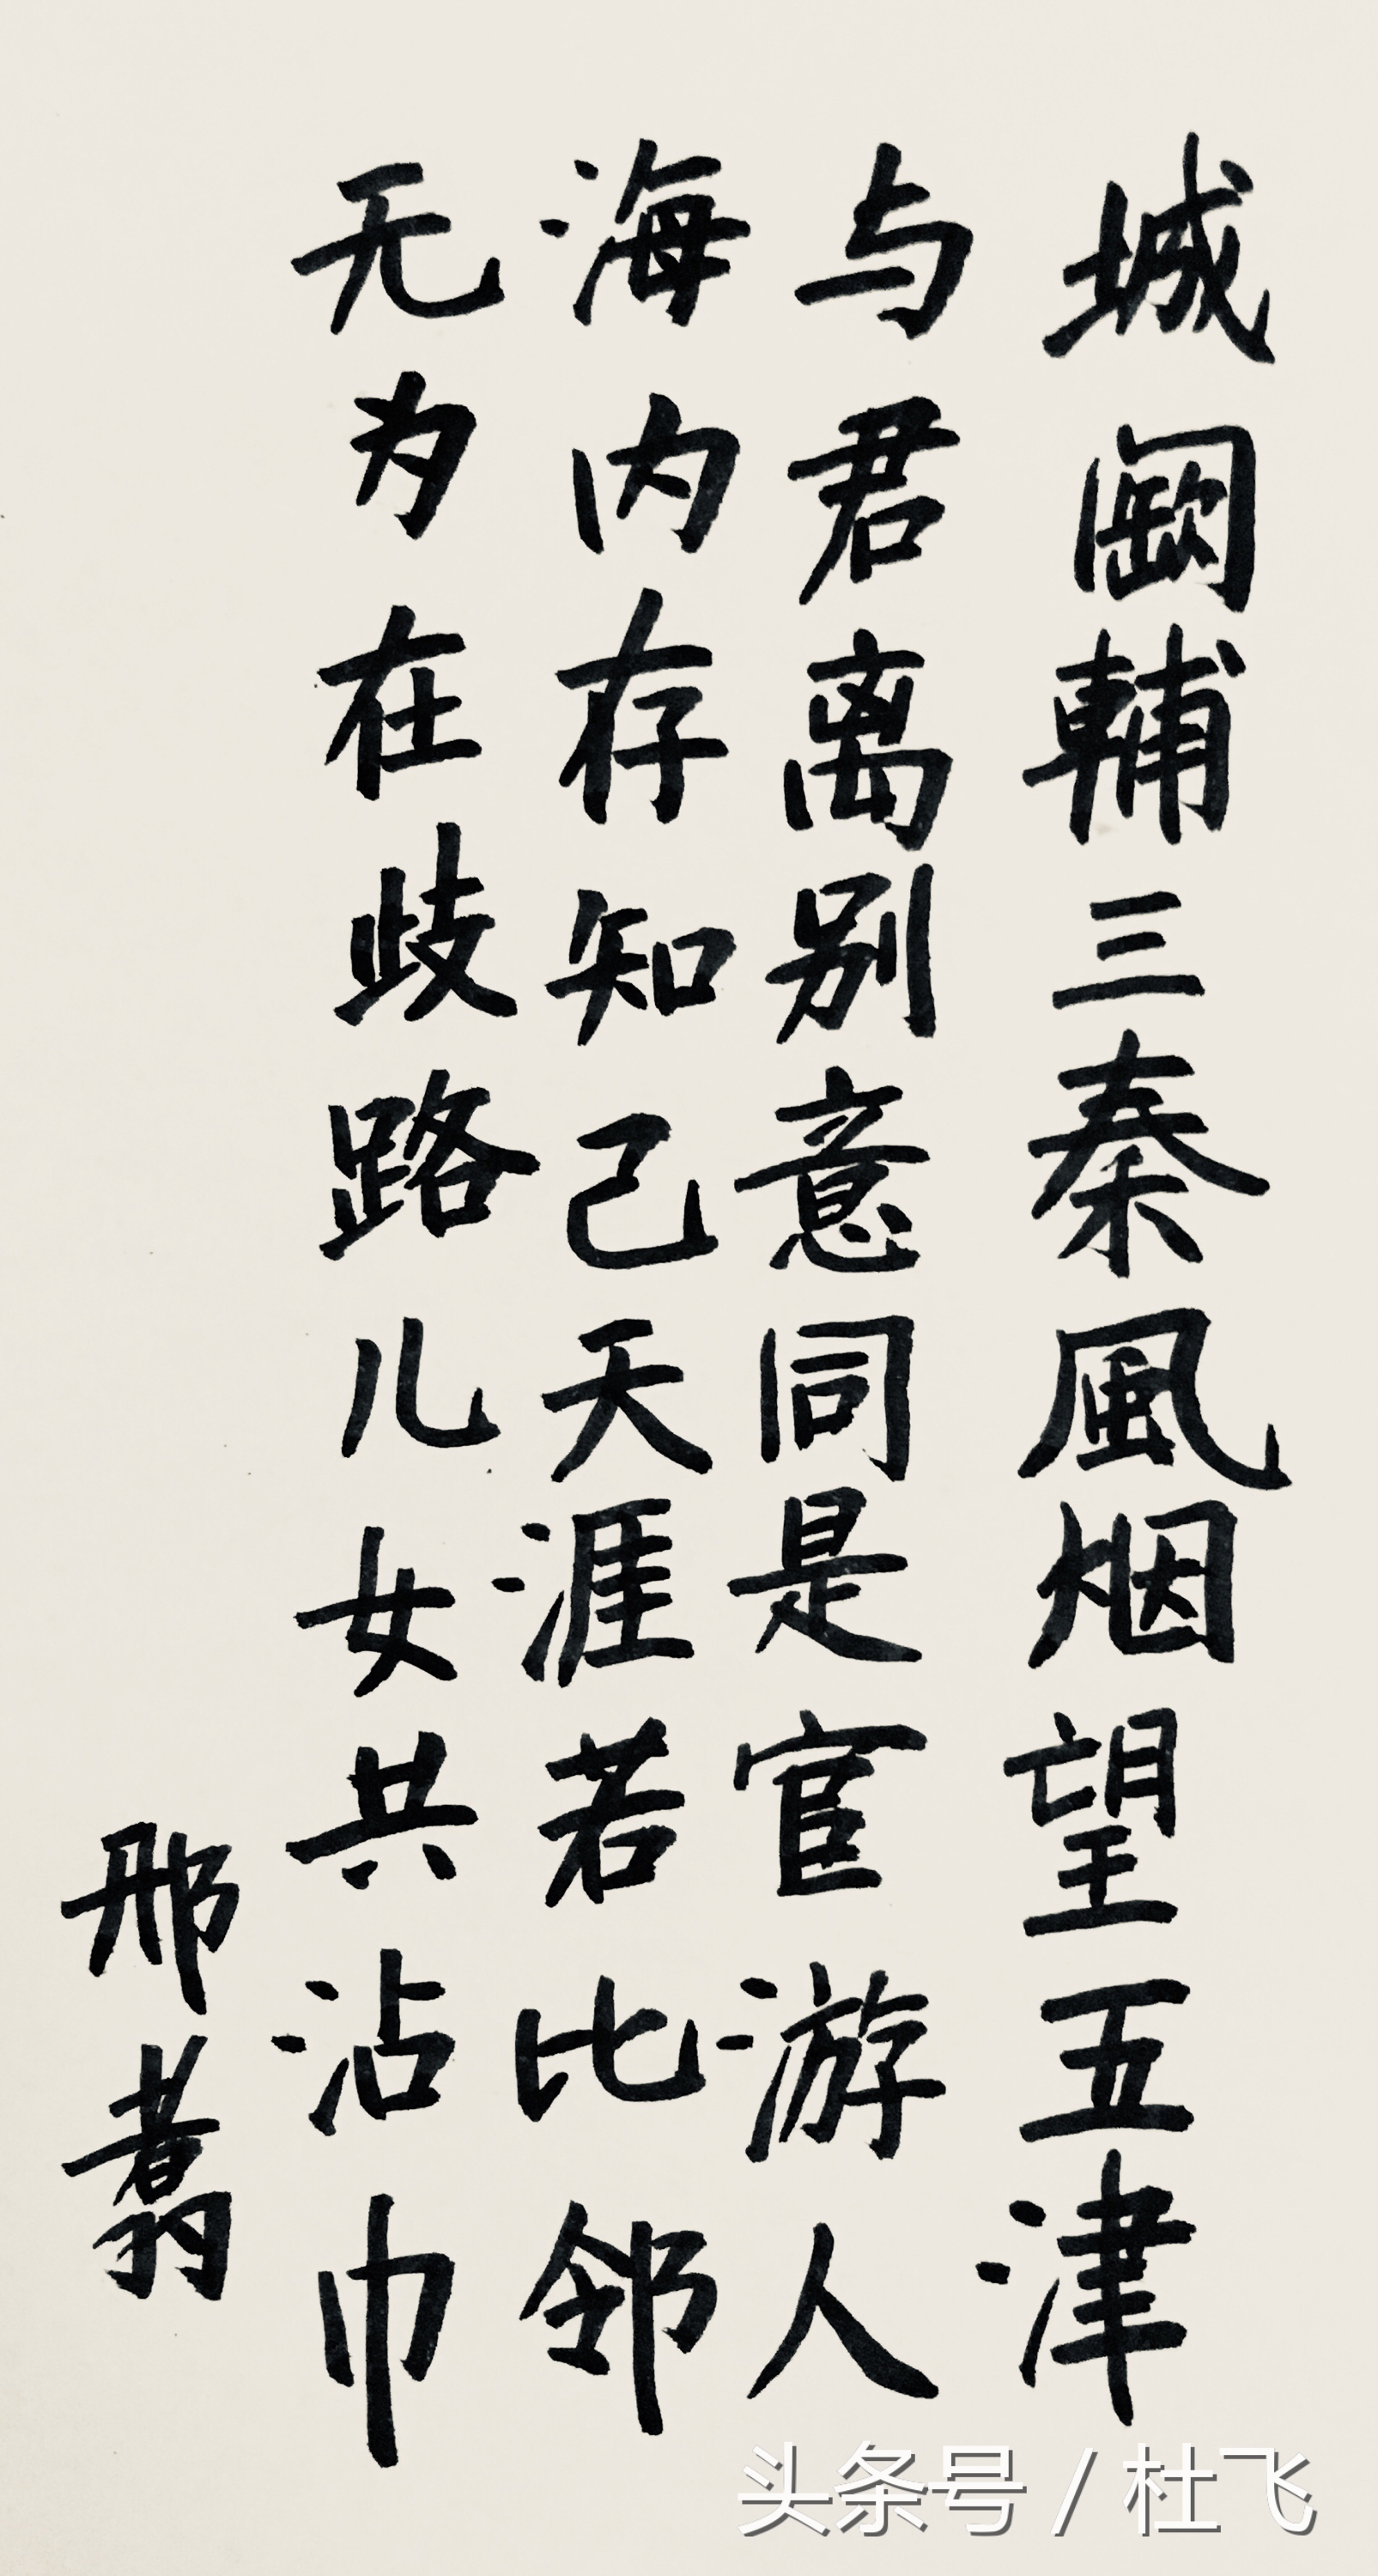 城阙輔三秦風烟望五津
与君离别意同是宦游人
海内存知己天涯若比邻
无为在歧路儿女共沾巾
邢翥
头条号 / 杜飞